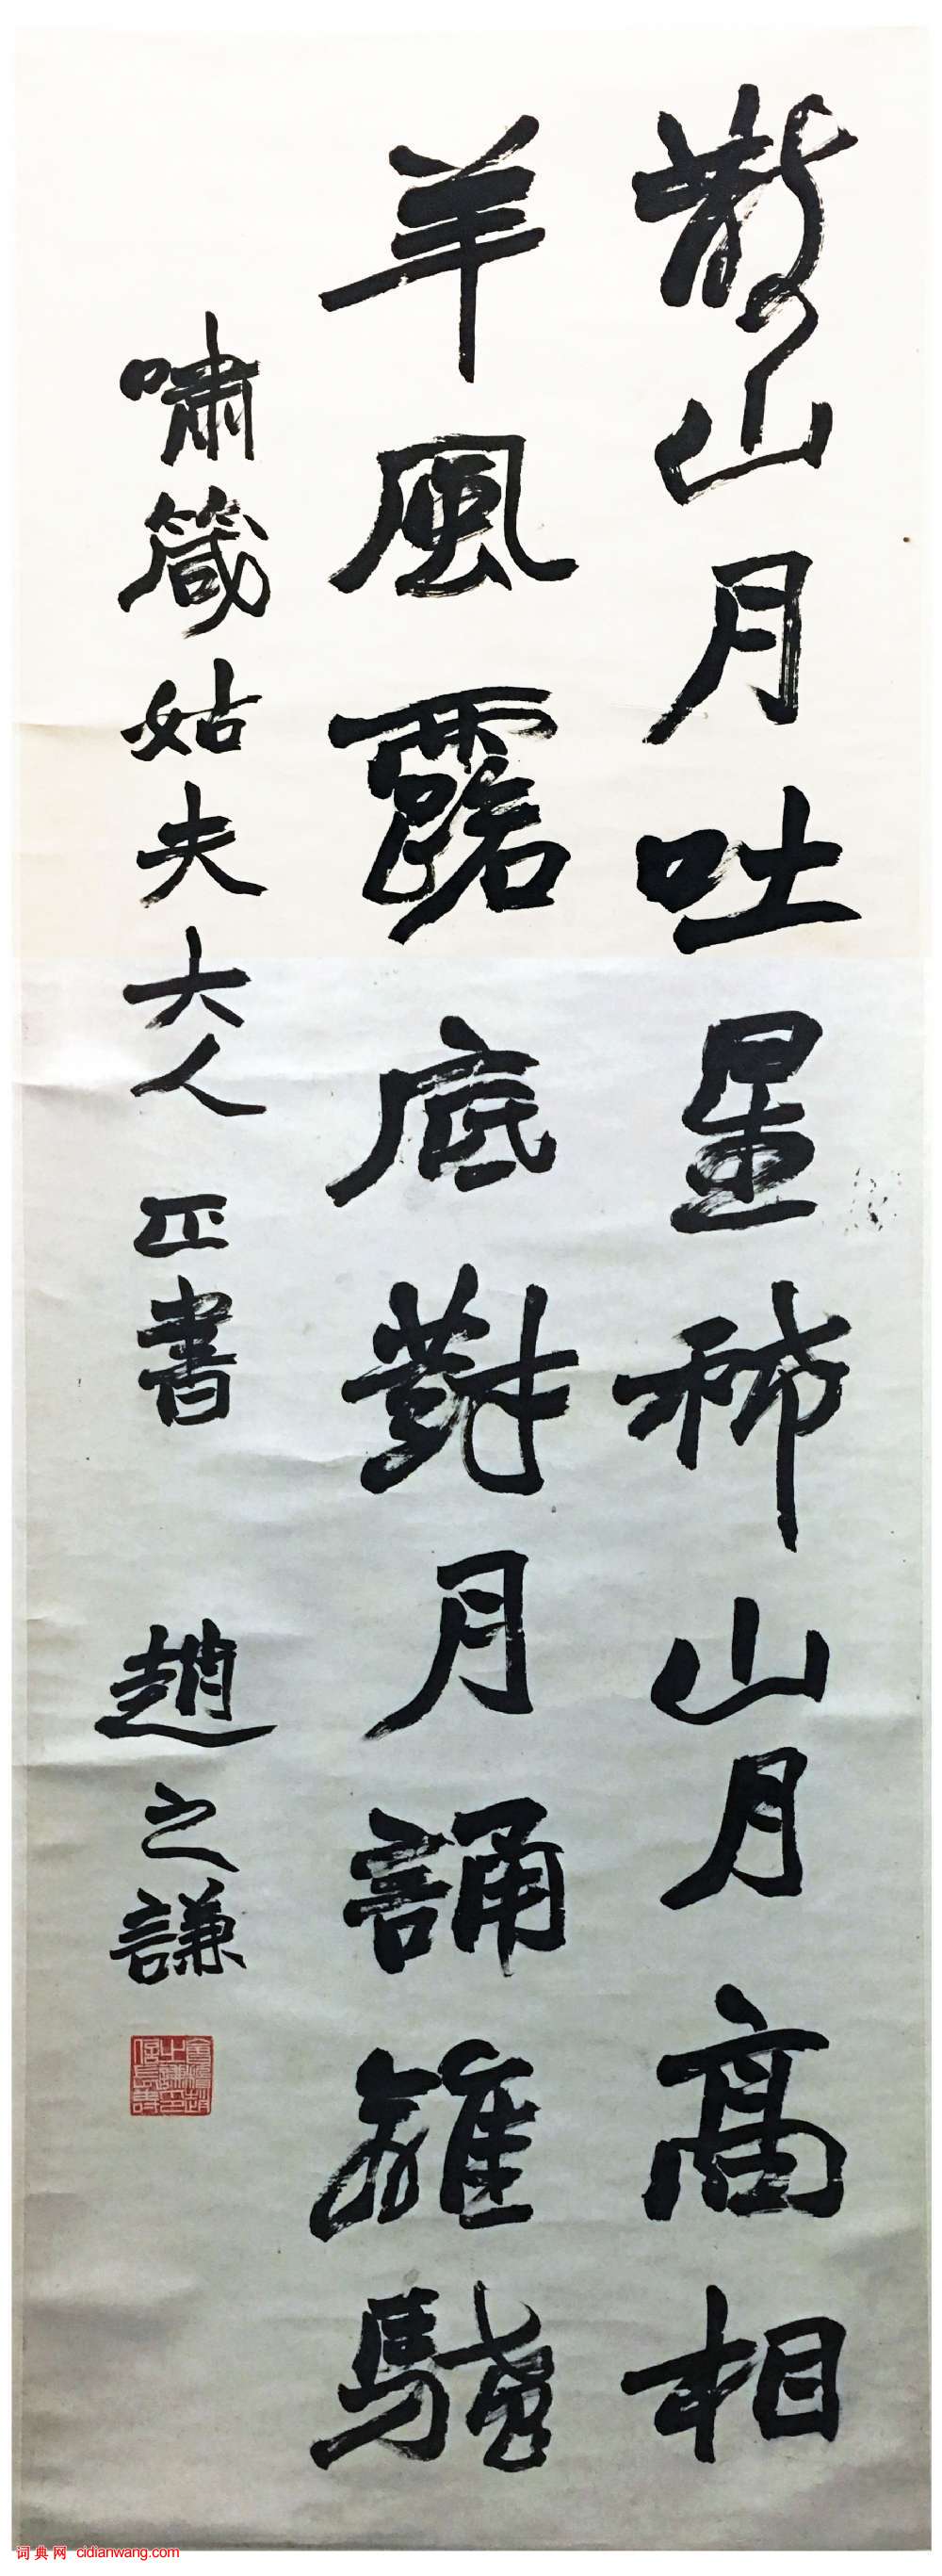 散山月吐星稀山月高相
羊風露底對月誦離騷
嘯箴姑夫大人正書 趙之謙
會稽趙之謙印信長壽
词典网 cidianwang.com